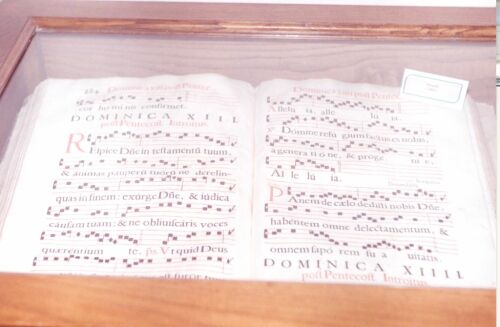 cor hominis confirmet.
DOMINICA XIII
post Pentecost. Introitus.
REspice Dñe in testamentū tuum,
& animas pauperū tuorū ne derelin-
quas in finem: exurge Dñe, & iudica
causam tuam: & ne obliuiscaris voces
quærentium te. ps. Vt quid Deus
Alleluia, alle luia.
Domine refu gium factus es nobis,
a genera ti o ne, & proge nie.
Al le lu ia.
PAnem de cælo dedisti nobis Dñe,
habentem omne delectamentum, &
omnem sapo rem sua uitatis.
DOMINICA XIIII
post Pentecost. Introitus.